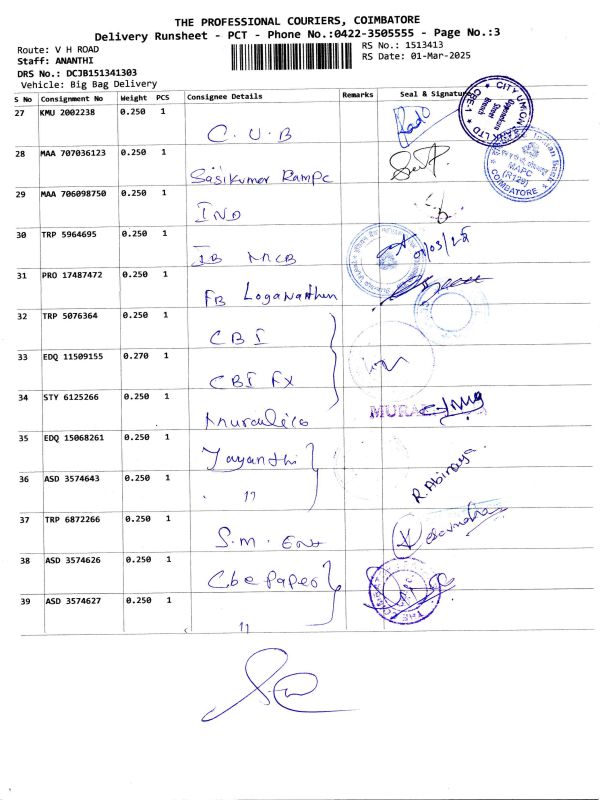 THE PROFESSIONAL COURIERS, COIMBATORE
Delivery Runsheet - PCT - Phone No.:0422-3505555 - Page No.:3
Route: V H ROAD
RS No.: 1513413
Staff: ANANTHI
RS Date: 01-Mar-2025
DRS No.: DCJB151341303
Vehicle: Big Bag Delivery
S No Consignment No Weight PCS Consignee Details Remarks Seal & Signature
27 KMU 2002238 0.250 1
C.U.B
CITY UNION BANK LTD
CBE-1
28 MAA 707036123 0.250 1
Sasikumar RamPC
Indian Bank
MAPC
(R129)
COIMBATORE
29 MAA 706098750 0.250 1
IND
30 TRP 5964695 0.250 1
IB MCB
01/03/25
31 PRO 17487472 0.250 1
FB Loganathan
32 TRP 5076364 0.250 1
CBI
33 EDQ 11509155 0.270 1
CBI FX
34 STY 6125266 0.250 1
Murali Co
35 EDQ 15068261 0.250 1
Jayanthi
36 ASD 3574643 0.250 1
. 11
R. Abiraya
37 TRP 6872266 0.250 1
S.M. Ent
38 ASD 3574626 0.250 1
Cbe Paper
39 ASD 3574627 0.250 1
11